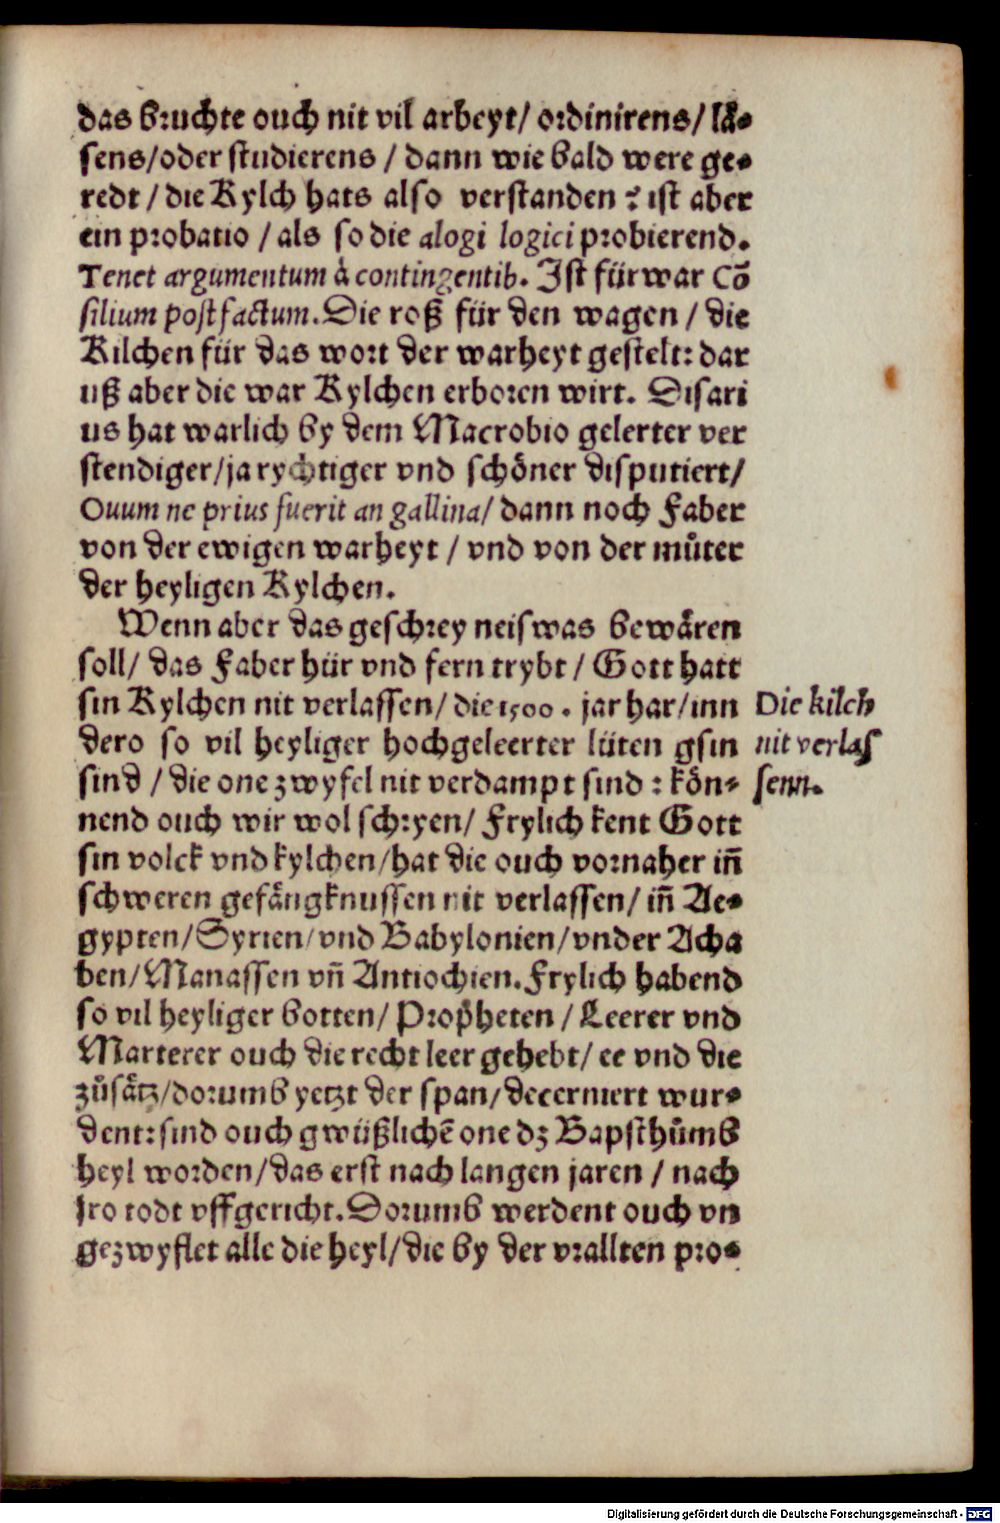 das bruchte ouch nit vil arbeyt/ ordinirens/ lä⸗
sens/oder studierens / dann wie bald were ge⸗
redt / die Kylch hats also verstanden ? ist aber
ein probatio / als so die alogi logici probierend.
Tenet argumentum à contingentib. Ist fürwar Cõ
silium post factum. Die roß für den wagen / die
Kilchen für das wort der warheyt gestelt: dar
uß aber die war Kylchen erboren wirt. Disari
us hat warlich by dem Macrobio gelerter ver
stendiger/ja rychtiger vnd schöner disputiert/
Ouum ne prius fuerit an gallina/ dann noch Faber
von der ewigen warheyt / vnd von der můter
der heyligen Kylchen.
Wenn aber das geschrey neiswas bewären
soll/ das Faber hür vnd fern trybt / Gott hatt
sin Kylchen nit verlassen/ die 1500. jar har/inn
dero so vil heyliger hochgeleerter lüten gsin
sind / die one zwyfel nit verdampt sind : kön⸗
nend ouch wir wol schryen/ Frylich kent Gott
sin volck vnd kylchen/hat die ouch vornaher iñ
schweren gefängknussen nit verlassen/ iñ Ae⸗
gypten/Syrien/vnd Babylonien/vnder Acha
ben/Manassen vñ Antiochien. Frylich habend
so vil heyliger botten/ Propheten / Leerer vnd
Marterer ouch die recht leer gehebt/ ee vnd die
zůsätz/dorumb yetzt der span/decerniert wur⸗
dent: sind ouch gwüßlichẽ one dz Bapsthůmb
heyl worden/das erst nach langen jaren / nach
jro todt vffgericht. Dorumb werdent ouch vn
gezwyflet alle die heyl/die by der vrallten pro⸗
Die kilch
nit verlas
senn.
Digitalisierung gefördert durch die Deutsche Forschungsgemeinschaft - DFG